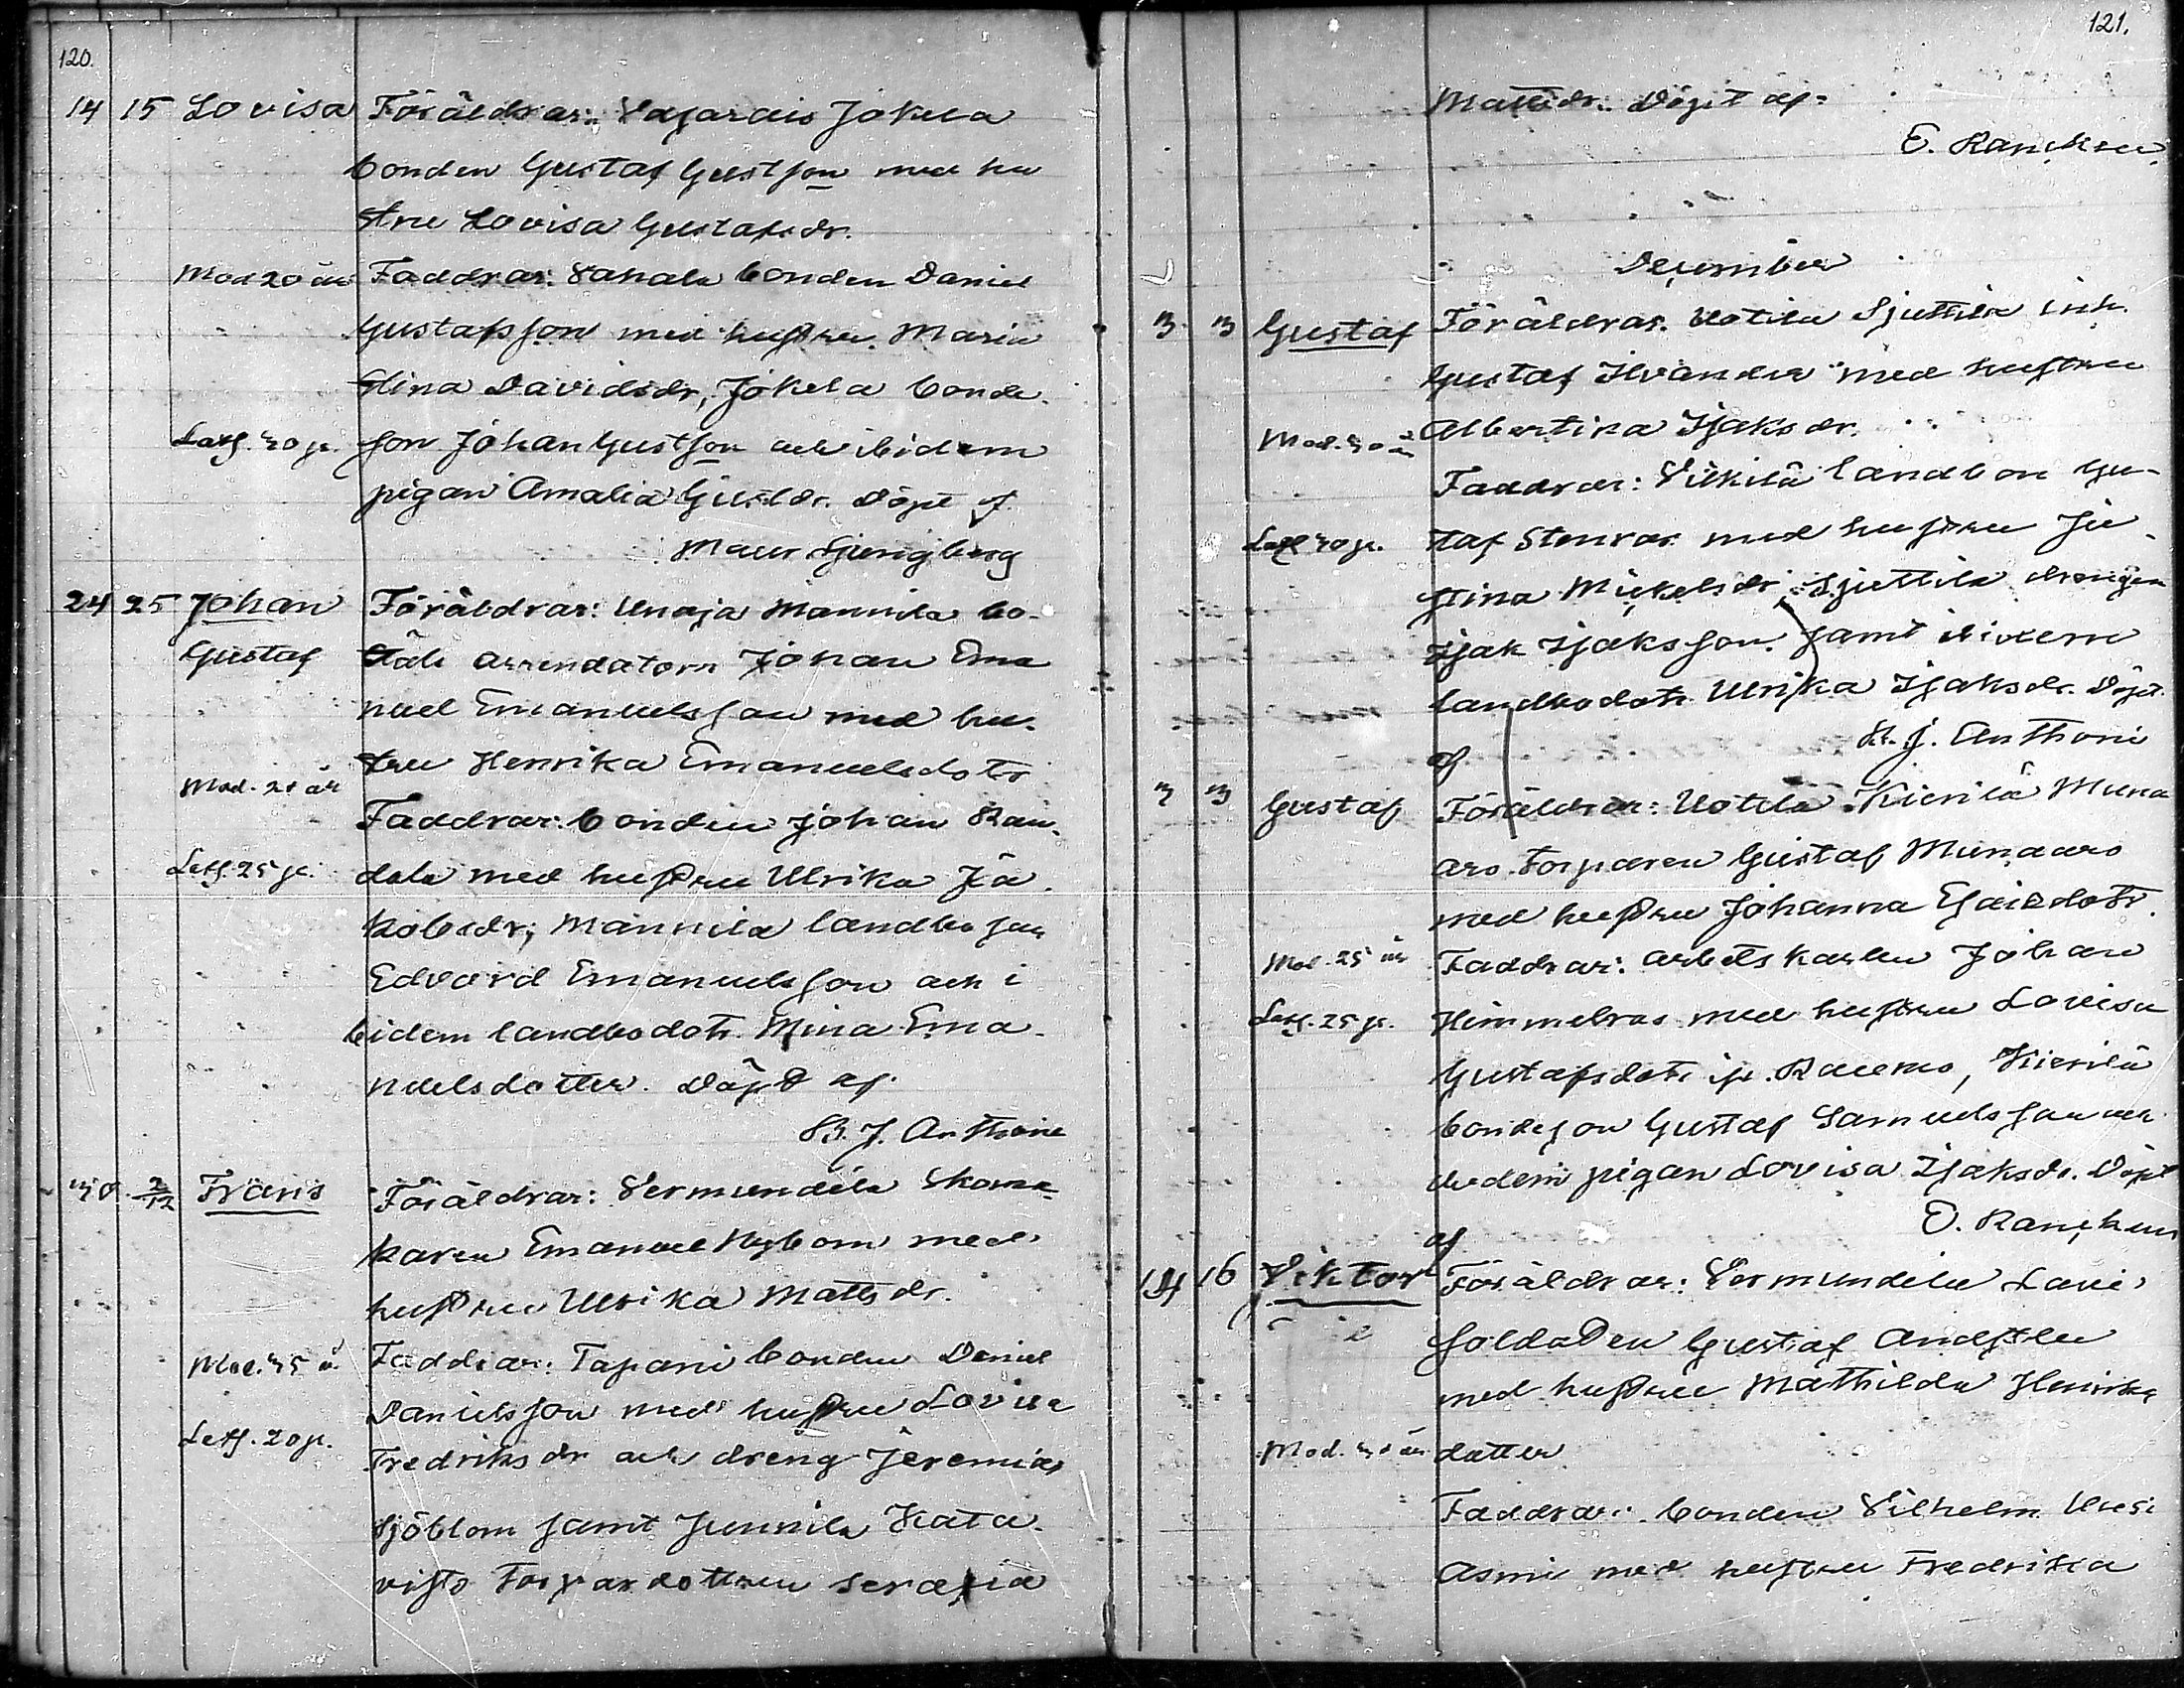 120.
14 15 Lovisa Föräldrar: Vasarais Jokela
bonden Gustaf Gustsson med hu
stru Lovisa Gustafsdr.
Mod 20 år Faddrar: Vahala bonden Daniel
Gustafsson med hustru Maria
Stina Davidsdr, Jokela bonde
son Johan Gustsson och ibidem
pigan Amalia Gustdr. Döpt af
Maur Ljungberg
24 25 Johan Föräldrar: Unaja Mannila bo-
Gustaf ställs arrendatorn Johan Ema
nuel Emanuelsson med hu-
stru Henrika Emanuelsdotr
Mod. 21 år
Faddrar: bonden Johan Ran-
Letf. 25 p. dala med hustru Ulrika Ja
kobsdr, Mannila landboson
Edvard Emanuelsson och i
bidem landbodotr. Mina Ema-
nuelsdotter. Döpt af
K. J. Anthoni
30 2/12 Frans Föräldrar: Vermundila Skoma-
karen Emanuel Nybom med
hustru Ulrika Mattsdr.
Mod. 35 å. Faddrar: Tapani bonden Daniel
Danielsson med hustru Lovisa
Letf. 20 p. Fredriksdr och dreng Jeremias
Sjöblom samt Junnila Kata-
visto Torpardottren Serafia
121.
Mattsdr. Döpt af
O. Rancken
December
3 3 Gustaf Föräldrar: Uotila Sjuttila inh.
Gustaf Ilvander med hustru
Mod. 30 år Albertina Isaksdr.
Faddrar: Vilkilä landbon Gu-
staf Stenroos med hustru Ju
stina Mickelsdr, Sjuttila drengen
Isak Isaksson samt ibidem
landbodotr. Ulrika Isaksdr. Döpt
af K. J. Anthoni
3 3 Gustaf Föräldrar: Uotila Kierilä Muna
aro Torparen Gustaf Munaaro
med hustru Johanna Esaiædotr.
Mod. 25 år Faddrar: arbetskarlen Johan
Letf. 25 p. Himmelroos med hustru Lovisa
Gustafsdotr ifr. Raumo, Kierilä
bondeson Gustaf Samuelsson och
ibidem pigan Lovisa Isaksdr. Döpt
af O. Rancken
14 16 Viktor Föräldrar: Vermundila Lavi
soldaten Gustaf Andstén
med hustru Mathilda Henriks
Mod. år dotter
Faddrar: bonden Vilhelm Uusi
Asmi med hustru Fredrika